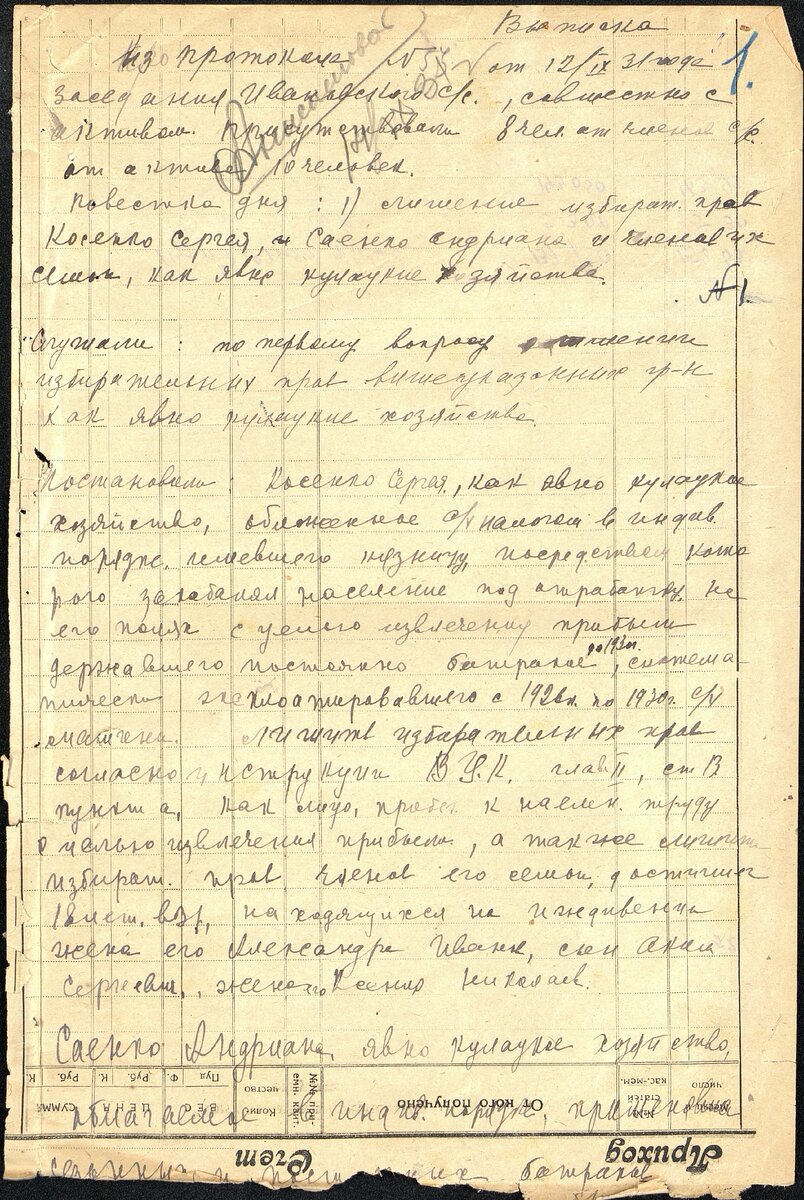 Выписка
1.
из протокола № 55 от 12/IX 31 года
заседания Ивановского с/с., совместно с
активом. Присутствовали 8 чел. от членов с/с.
от актива 10 человек.
Повестка дня : 1) лишение избират. прав
Косенко Сергея, и Саенко Андриана и членов их
семьи, как явно кулацкие хозяйства.
№ 1.
Слушали : по первому вопросу о лишении
избирательних прав вишеуказанних гр-н
как явно кулацкие хозяйства.
Постановили : Косенко Сергея, как явно кулацкое
хозяйство, обложенное с/х налогом в индив.
порядке, имевшего кузницу, посредством кото
рого закабалял население под отработку на
его полях с целью извлечения прибыли
державшего постоянно батраков до 1930г., система-
тически эксплоатировавшего с 1926г. по 1930г. с/х
машини. Лишить избирательних прав
согласно инструкции ВЦ.К. глав II, ст В
пункт а, как лицо, прибег. к наемн. труду
с целью извлечения прибыли, а также лишить
избират. прав членов его семьи, достигших
18 лет. взр, находящихся на иждивении
жена его Александра Иванн, син Аким
Сергеевич., жена его Ксения Николаев.
Саенко Андриана, явно кулацкое хозяйство,
облагаемое индив. порядке, применявша
сезонних и постоянних батраков
Приход
Счет
Месяц и число
№№ статей кас.-мем.
От кого получено
№№ при- емн. квит.
Коли- чество
ВЕС
Пуд Ф.
ЦЕНА
Руб. К.
СУММА
Руб. К.